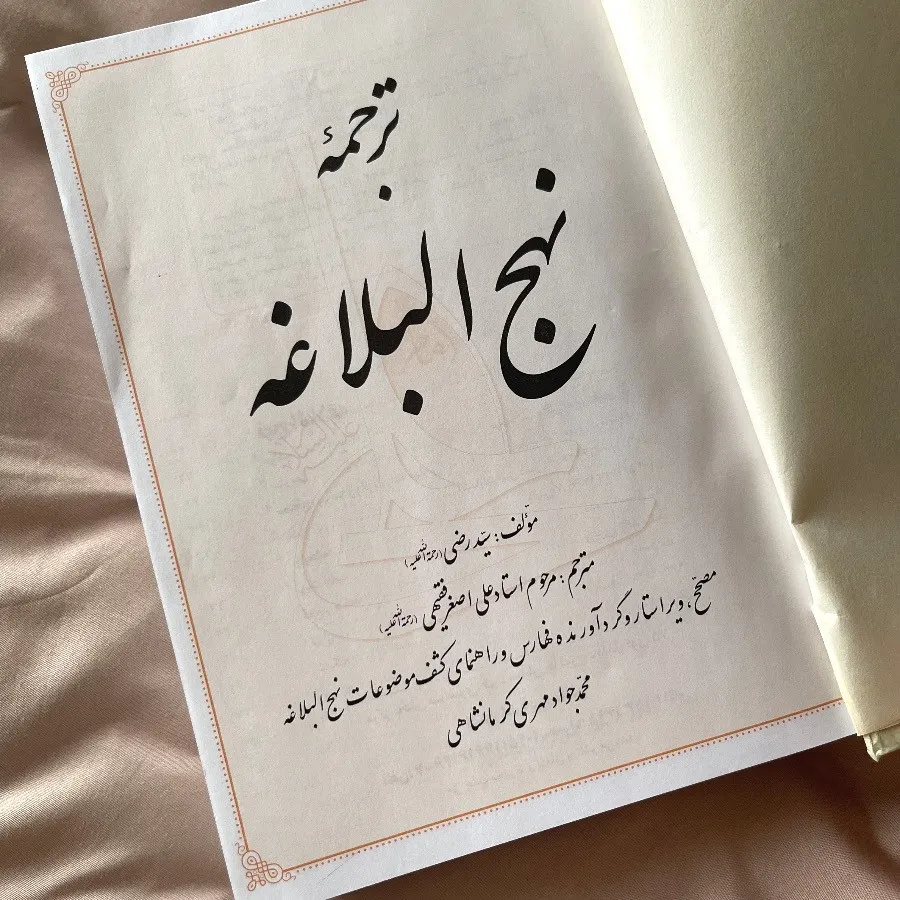 ترجمهٔ
نهج البلاغه
مؤلف: سیّد رضی (رحمة الله علیه)
مترجم: مرحوم استاد علی اصغر فقیهی (رحمة الله علیه)
مصحّح، ویراستار و گردآورنده فهارس و راهنمای کشف موضوعات نهج البلاغه
محمّدجواد مهری کرمانشاهی